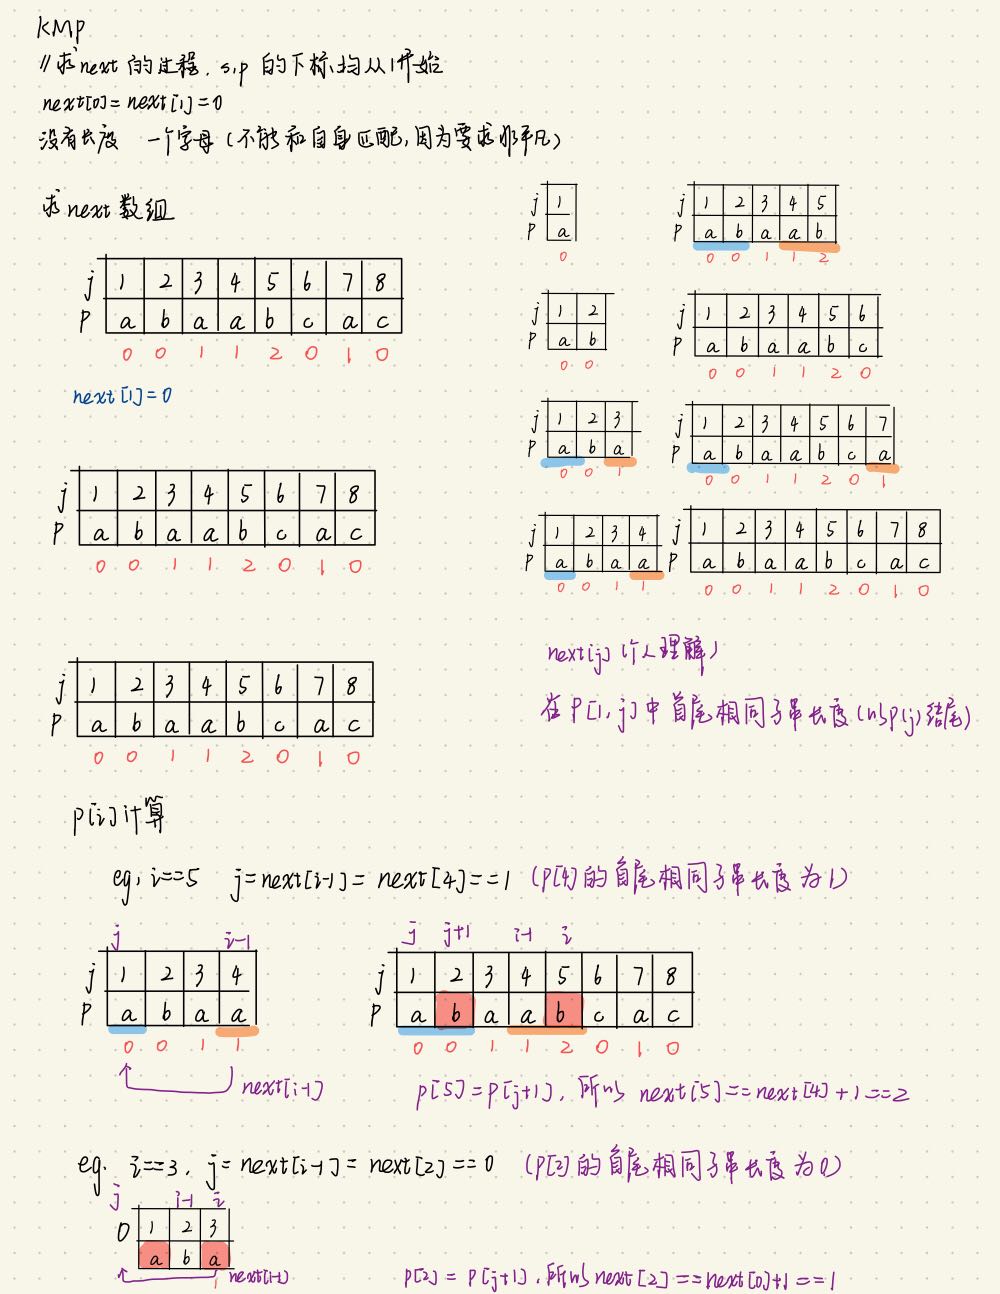 KMP
//求next的过程. s,p 的下标均从1开始
next[0]=next[1]=0
没有长度 一个字母(不能和自身匹配,因为要求非平凡)
求next数组
j 1 2 3 4 5 6 7 8
P a b a a b c a c
0 0 1 1 2 0 1 0
next[1]=0
j 1 2 3 4 5 6 7 8
P a b a a b c a c
0 0 1 1 2 0 1 0
j 1 2 3 4 5 6 7 8
P a b a a b c a c
0 0 1 1 2 0 1 0
j 1
P a
0
j 1 2
P a b
0 0
j 1 2 3
P a b a
0 0 1
j 1 2 3 4
P a b a a
0 0 1 1
j 1 2 3 4 5
P a b a a b
0 0 1 1 2
j 1 2 3 4 5 6
P a b a a b c
0 0 1 1 2 0
j 1 2 3 4 5 6 7
P a b a a b c a
0 0 1 1 2 0 1
j 1 2 3 4 5 6 7 8
P a b a a b c a c
0 0 1 1 2 0 1 0
next[j] (个人理解)
在P[1,j]中首尾相同子串长度(以p[j]结尾)
p[i]计算
eg, i==5 j=next[i-1]= next[4]==1 (P[4]的首尾相同子串长度为1)
j i-1
j 1 2 3 4
P a b a a
0 0 1 1
next[i-1]
j j+1 i-1 i
j 1 2 3 4 5 6 7 8
P a b a a b c a c
0 0 1 1 2 0 1 0
p[5]=p[j+1], 所以 next[5]==next[4]+1==2
eg. i==3, j= next[i-1]= next[2]==0 (P[2]的首尾相同子串长度为0)
j i-1 i
0 1 2 3
a b a
next[i-1] 1
p[2] = p[j+1], 所以next[2]==next[0]+1==1